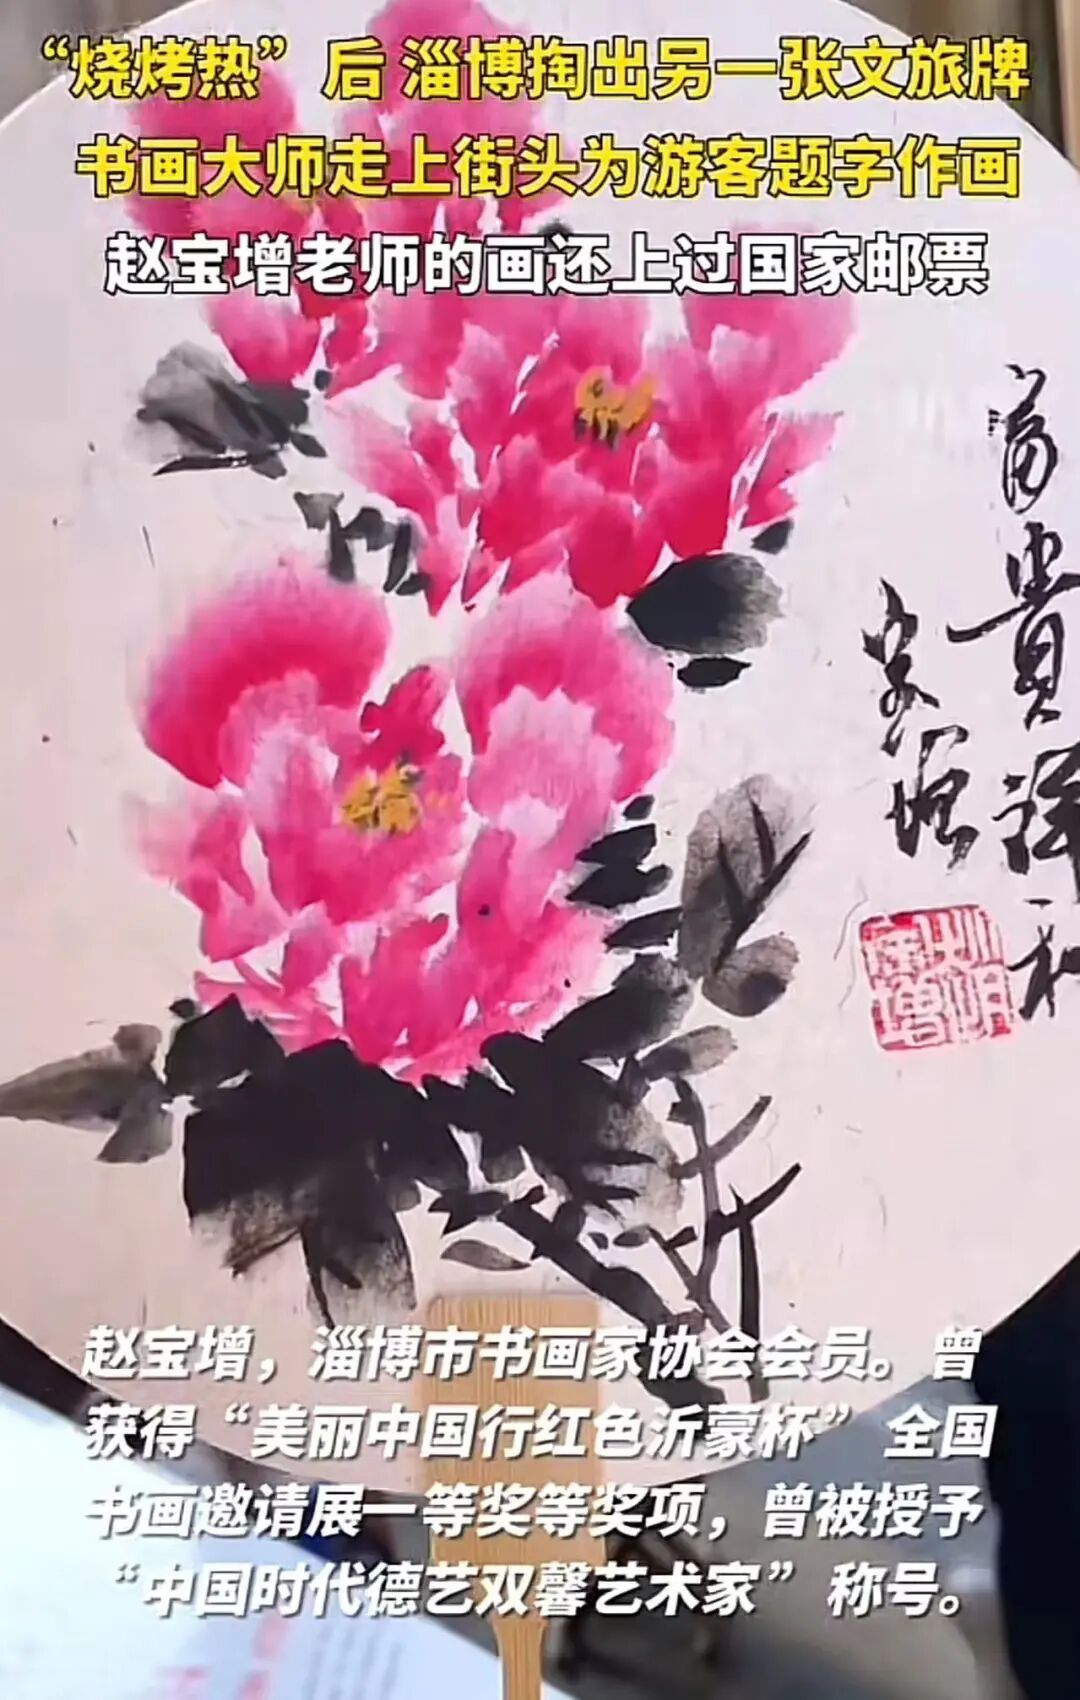 “烧烤热”后 淄博掏出另一张文旅牌
书画大师走上街头为游客题字作画
赵宝增老师的画还上过国家邮票
富貴祥和
宝增
赵宝增，淄博市书画家协会会员。曾
获得“美丽中国行红色沂蒙杯”全国
书画邀请展一等奖等奖项，曾被授予
“中国时代德艺双馨艺术家”称号。